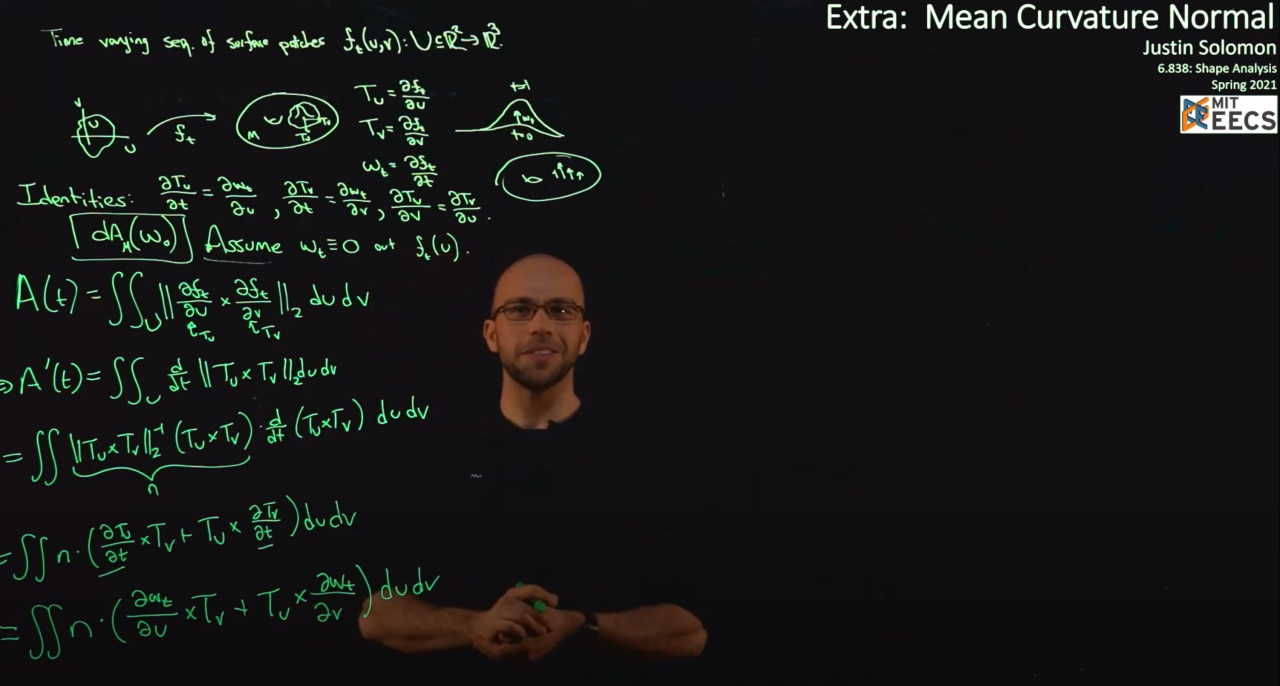 Extra: Mean Curvature Normal
Justin Solomon
6.838: Shape Analysis
Spring 2021
MIT
EECS
Time varying seq. of surface patches f_t(u,v): U⊆ℝ²→ℝ³.
v
U
u
f_t
M
T_u = ∂f_t/∂u
T_v = ∂f_t/∂v
w_t = ∂f_t/∂t
t=1
w_t
t=0
Identities: ∂T_u/∂t = ∂w_t/∂u, ∂T_v/∂t = ∂w_t/∂v, ∂T_u/∂v = ∂T_v/∂u.
dA_M(w_0) Assume w_t ≡ 0 out f_t(U).
A(t) = ∬_U ‖∂f_t/∂u × ∂f_t/∂v‖₂ du dv
↑T_u ↑T_v
⇒ A'(t) = ∬_U d/dt ‖T_u × T_v‖₂ du dv
= ∬ ‖T_u × T_v‖₂⁻¹ (T_u × T_v) · d/dt (T_u × T_v) du dv
n
= ∬ n · (∂T_u/∂t × T_v + T_u × ∂T_v/∂t) du dv
= ∬ n · (∂w_t/∂u × T_v + T_u × ∂w_t/∂v) du dv